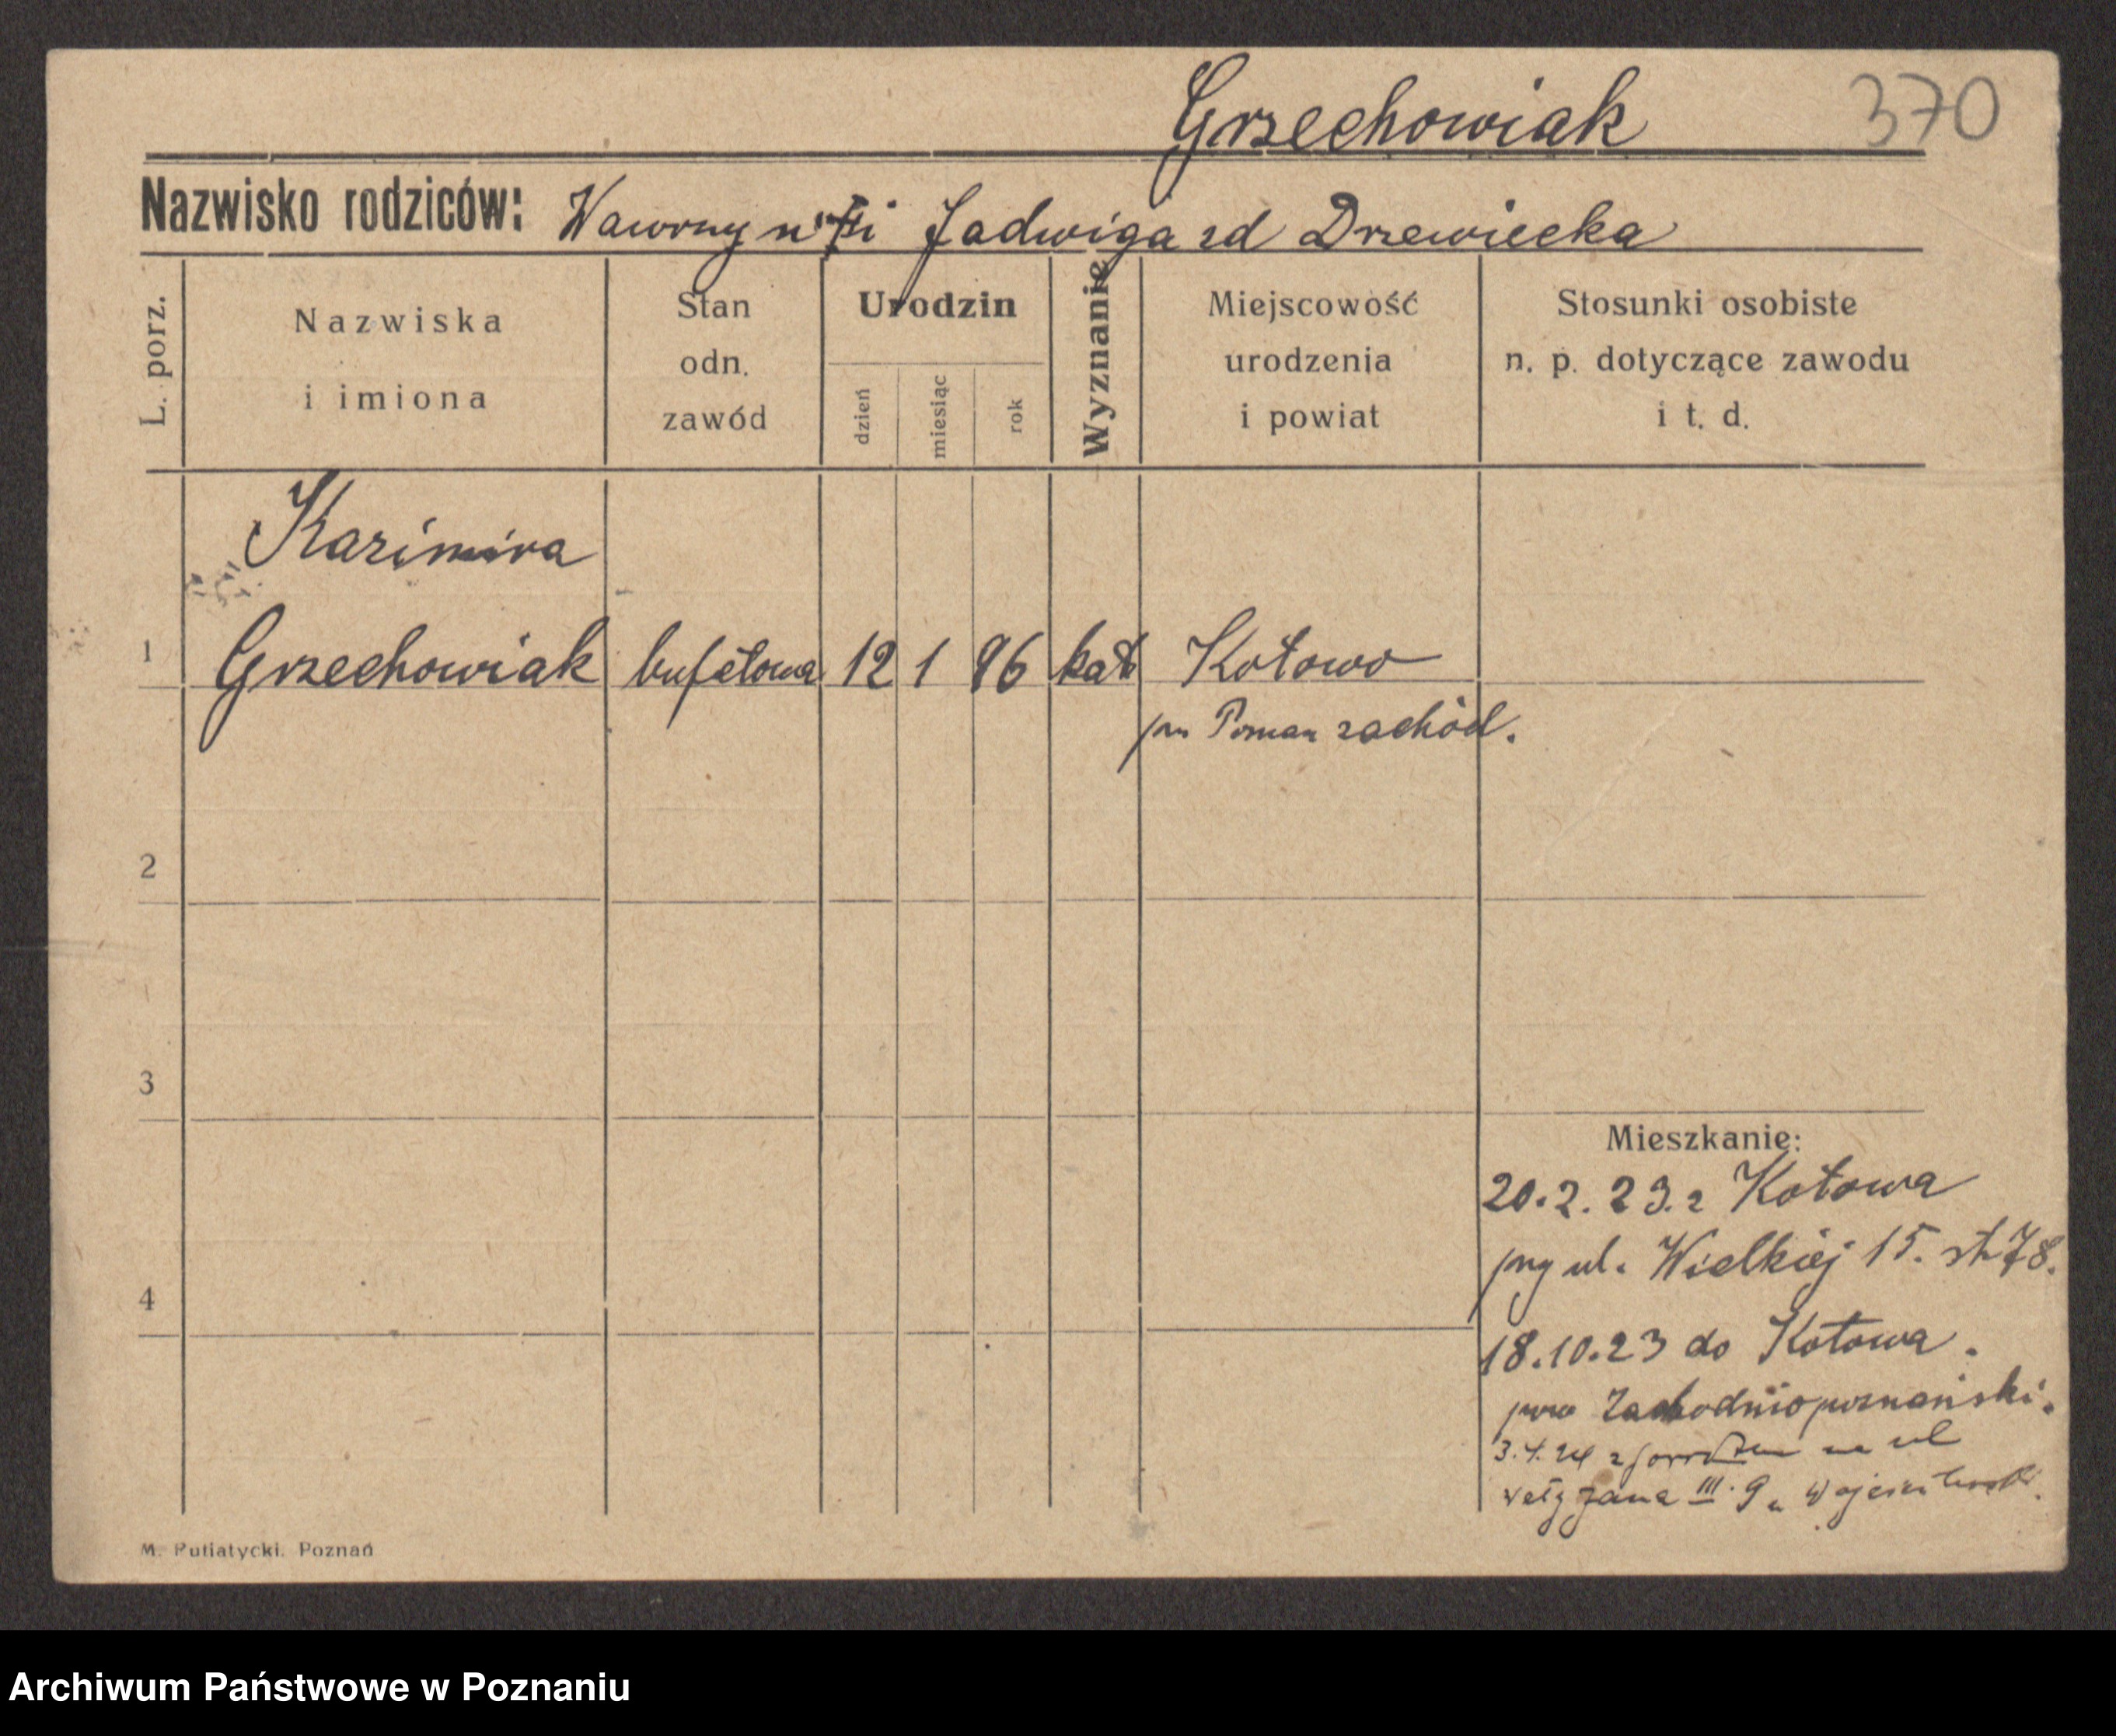 Grzechowiak 370
Nazwisko rodziców: Wawrzyn i Jadwiga zd Drzewiecka
L. porz.
Nazwiska
i imiona
Stan
odn.
zawód
Urodzin
dzień
miesiąc
rok
Wyznanie
Miejscowość
urodzenia
i powiat
Stosunki osobiste
n. p. dotyczące zawodu
i t. d.
Kazimira
1 Grzechowiak bufetowa 12 1 96 kat Kotowo
pw Poznań zachód.
2
3
4
Mieszkanie:
20.2.23. z Kotowa
przy ul. Wielkiej 15.
18.10.23 do Kotowa.
pow Zachodniopoznański.
na ul
Jana III. 9
M. Putiatycki. Poznań
Archiwum Państwowe w Poznaniu